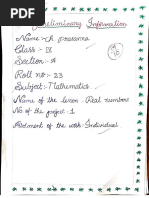 Preliminary Information
Name:-ch. prasanna
Class:- IX
Section:-A
Roll no:- 23
Subject:-Mathematics
Name of the lesson:-Real numbers
No of the project:-1
Allotment of the work:-Individual